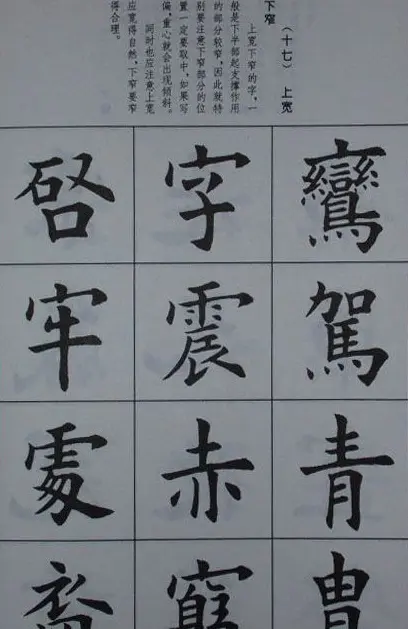 （十七）上宽
下窄
上宽下窄的字，一
般是下半部起支撑作用
的部分较窄，因此就特
别要注意下窄部分的位
置一定要取中，如果写
偏，重心就会出现倾斜。
同时也应注意上宽
应宽得自然，下窄要窄
得合理。
鸞
駕
青
字
震
赤
牢